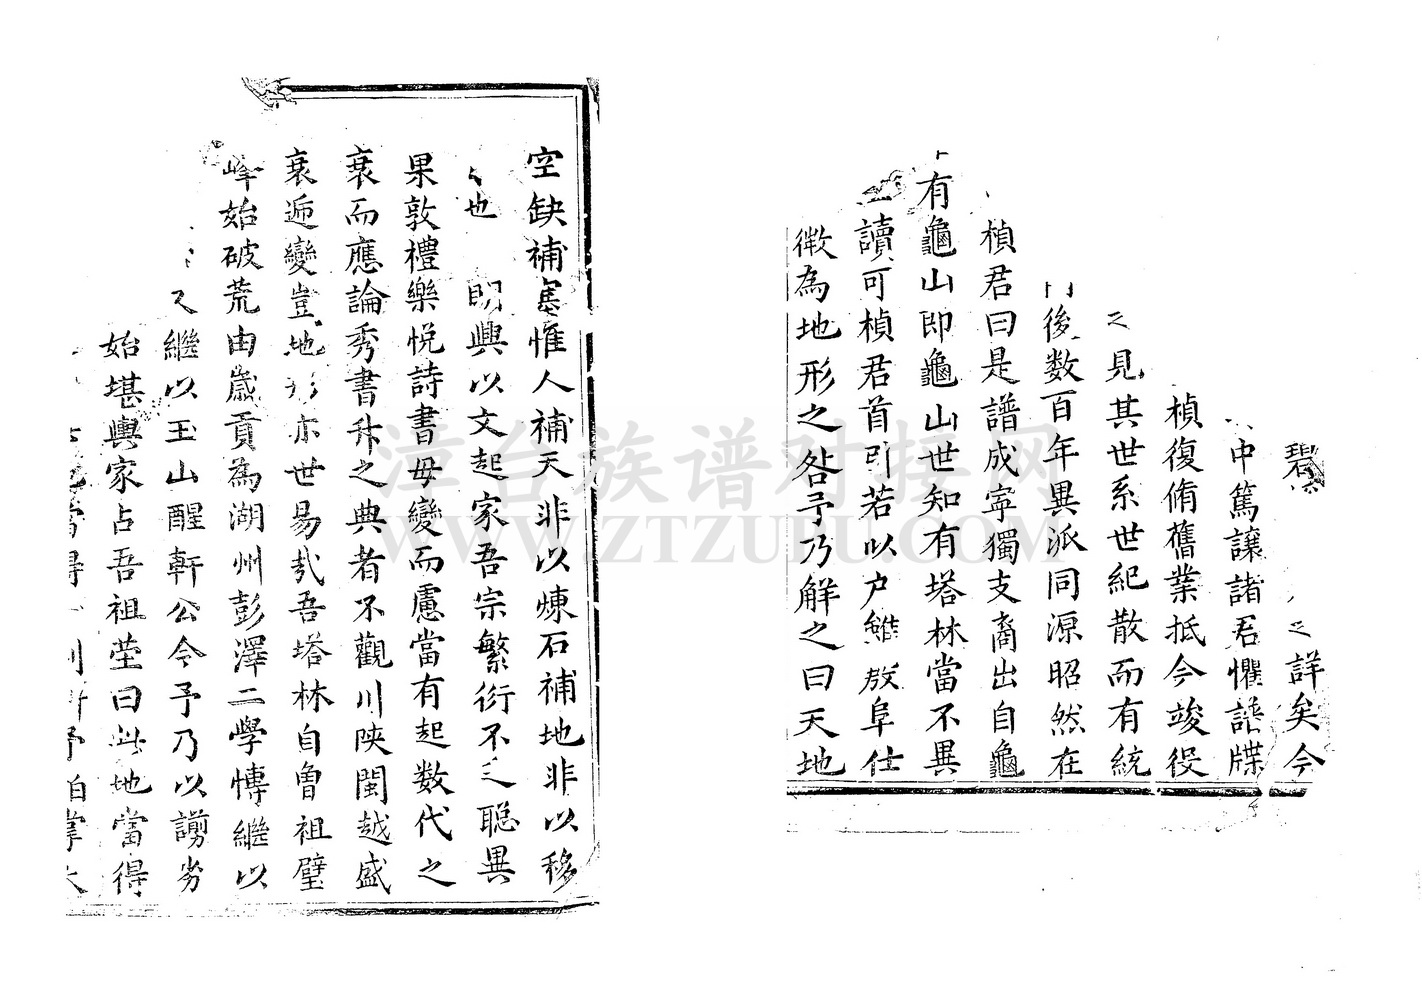 碧
之詳矣今
中篤讓諸君懼譜牒
楨復脩舊業抵今竣役
之見其世系世紀散而有統
後数百年異派同源昭然在
楨君曰是譜成寧獨支裔出自龜
有龜山即龜山世知有塔林當不異
讀可楨君首引若以户雖放阜仕
微為地形之咎予乃解之曰天地
空缺補塞惟人補天非以煉石補地非以移
也 興以文起家吾宗繁衍不乏聰異
果敦禮樂悦詩書毋變而慮當有起数代之
衰而應論秀書升之典者不觀川陝閩越盛
衰遞變豈地形亦世易哉吾塔林自魯祖璧
峰始破荒由歲貢為湖州彭澤二學博繼以
又繼以玉山醒軒公今予乃以謭劣
始堪輿家占吾祖塋曰此地當得
當得
漳台族谱对接网
WWW.ZTZUPU.COM